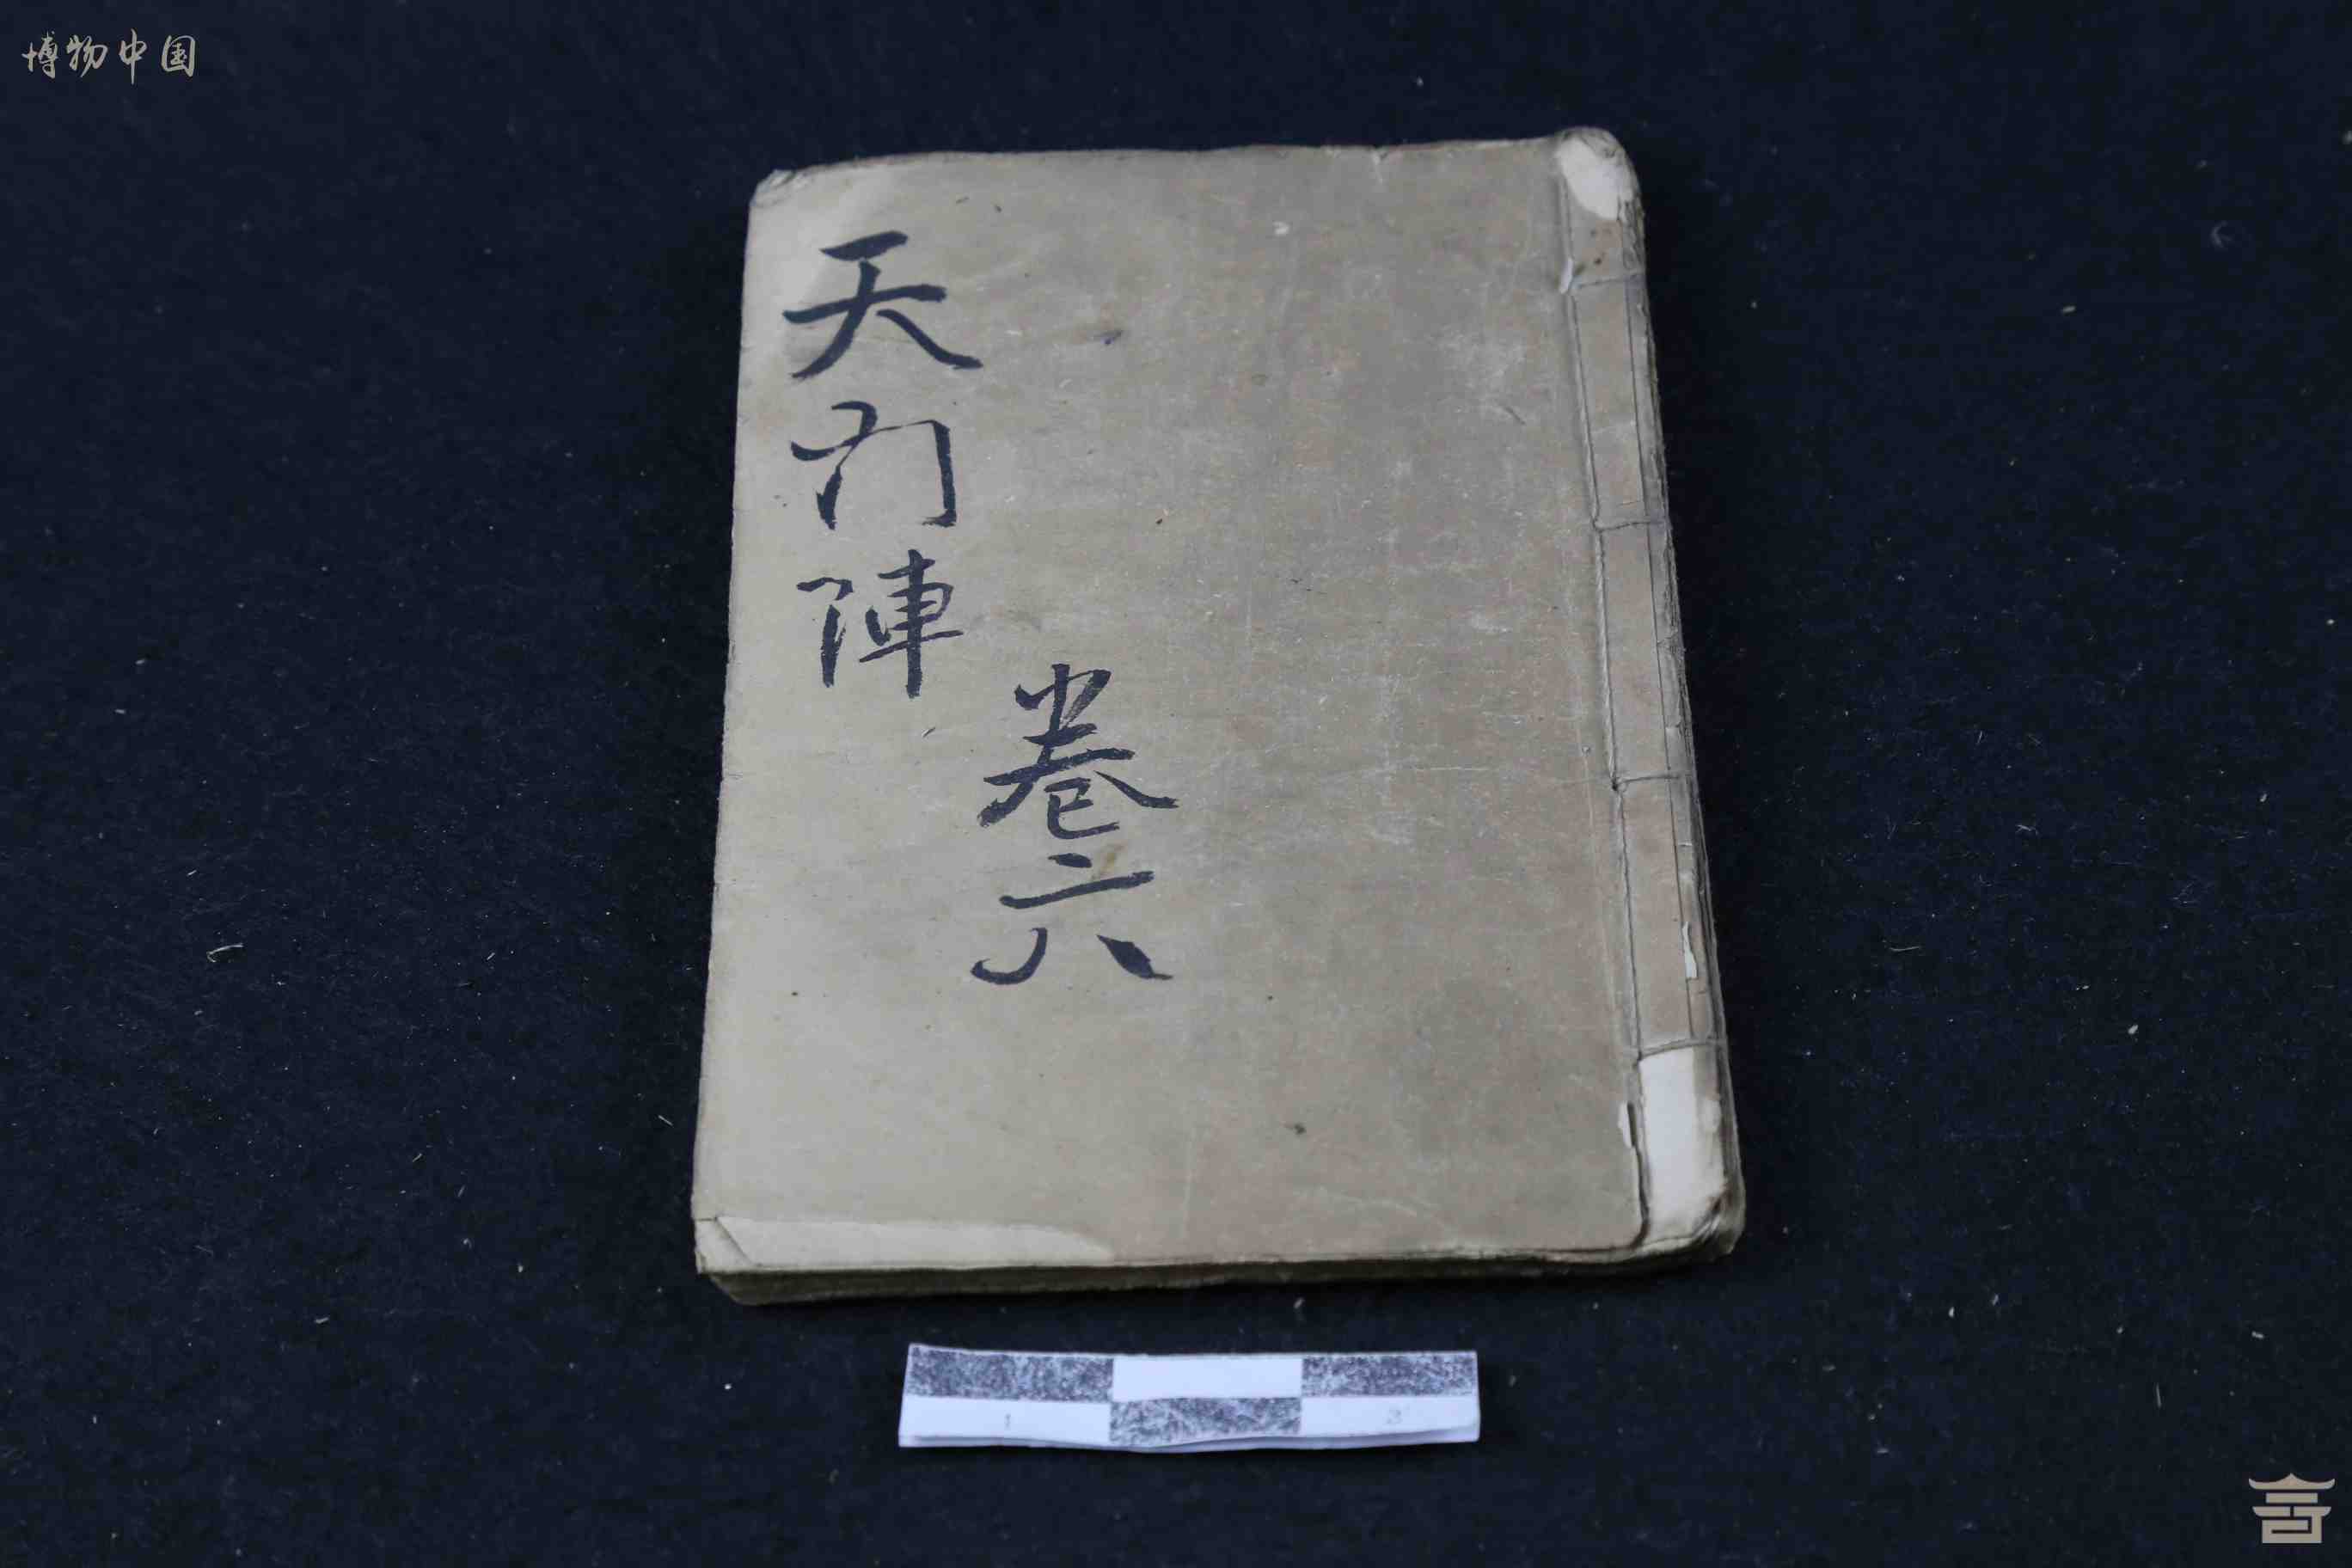 博物中国
天门陣
卷六
1
3